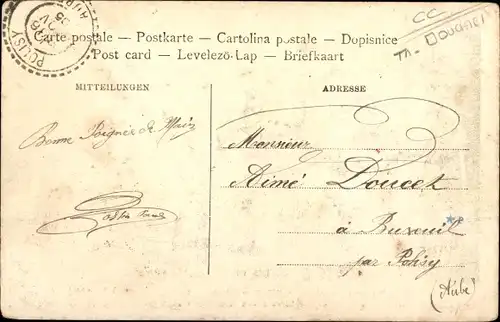 CC
Th. Douane
POLISY
AUBE
Carte postale – Postkarte – Cartolina postale – Dopisnice
Post card – Levelező-Lap – Briefkaart
MITTEILUNGEN
ADRESSE
Bonne Poignée de Main
Monsieur
Aimé Doucet
à Buxeuil
par Polisy
(Aube)